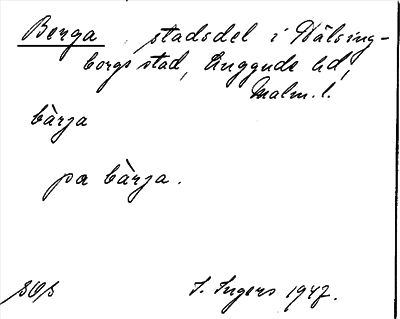 Berga, stadsdel i Hälsing-
borgs stad, Luggude hd,
Malm. l.
bàrja
pa bàrja.
SOS I. Ingers 1947.